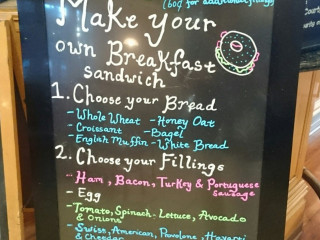 (60¢ for additional fillings)
Make your
own Breakfast
sandwich
1. Choose your Bread
- Whole Wheat - Honey Oat
- Croissant - Bagel
- English Muffin - White Bread
2. Choose your Fillings
- Ham, Bacon, Turkey & Portuguese
sausage
- Egg
- Tomato, Spinach, Lettuce, Avocado
& Onions
- Swiss, American, Provolone, Havarti
& Cheddar